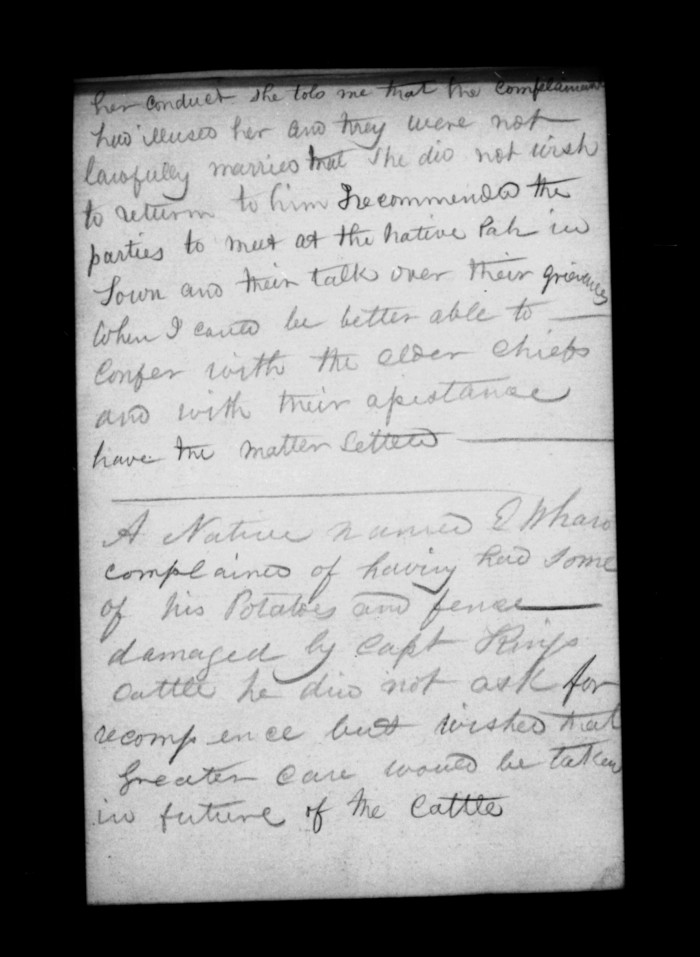 her conduct she told me that the complainant
had illused her and they were not
lawfully married that she did not wish
to return to him I recommended the
parties to meet at the native Pah in
Town and their talk over their grievances
When I could be better able to
confer with the elder chiefs
and with their assistance
have the matter settled
A Native named E Wharo
complained of having had some
of his Potatoes and fence
damaged by Capt Kings
cattle he did not ask for
recompence but wished that
greater care would be taken
in future of the Cattle